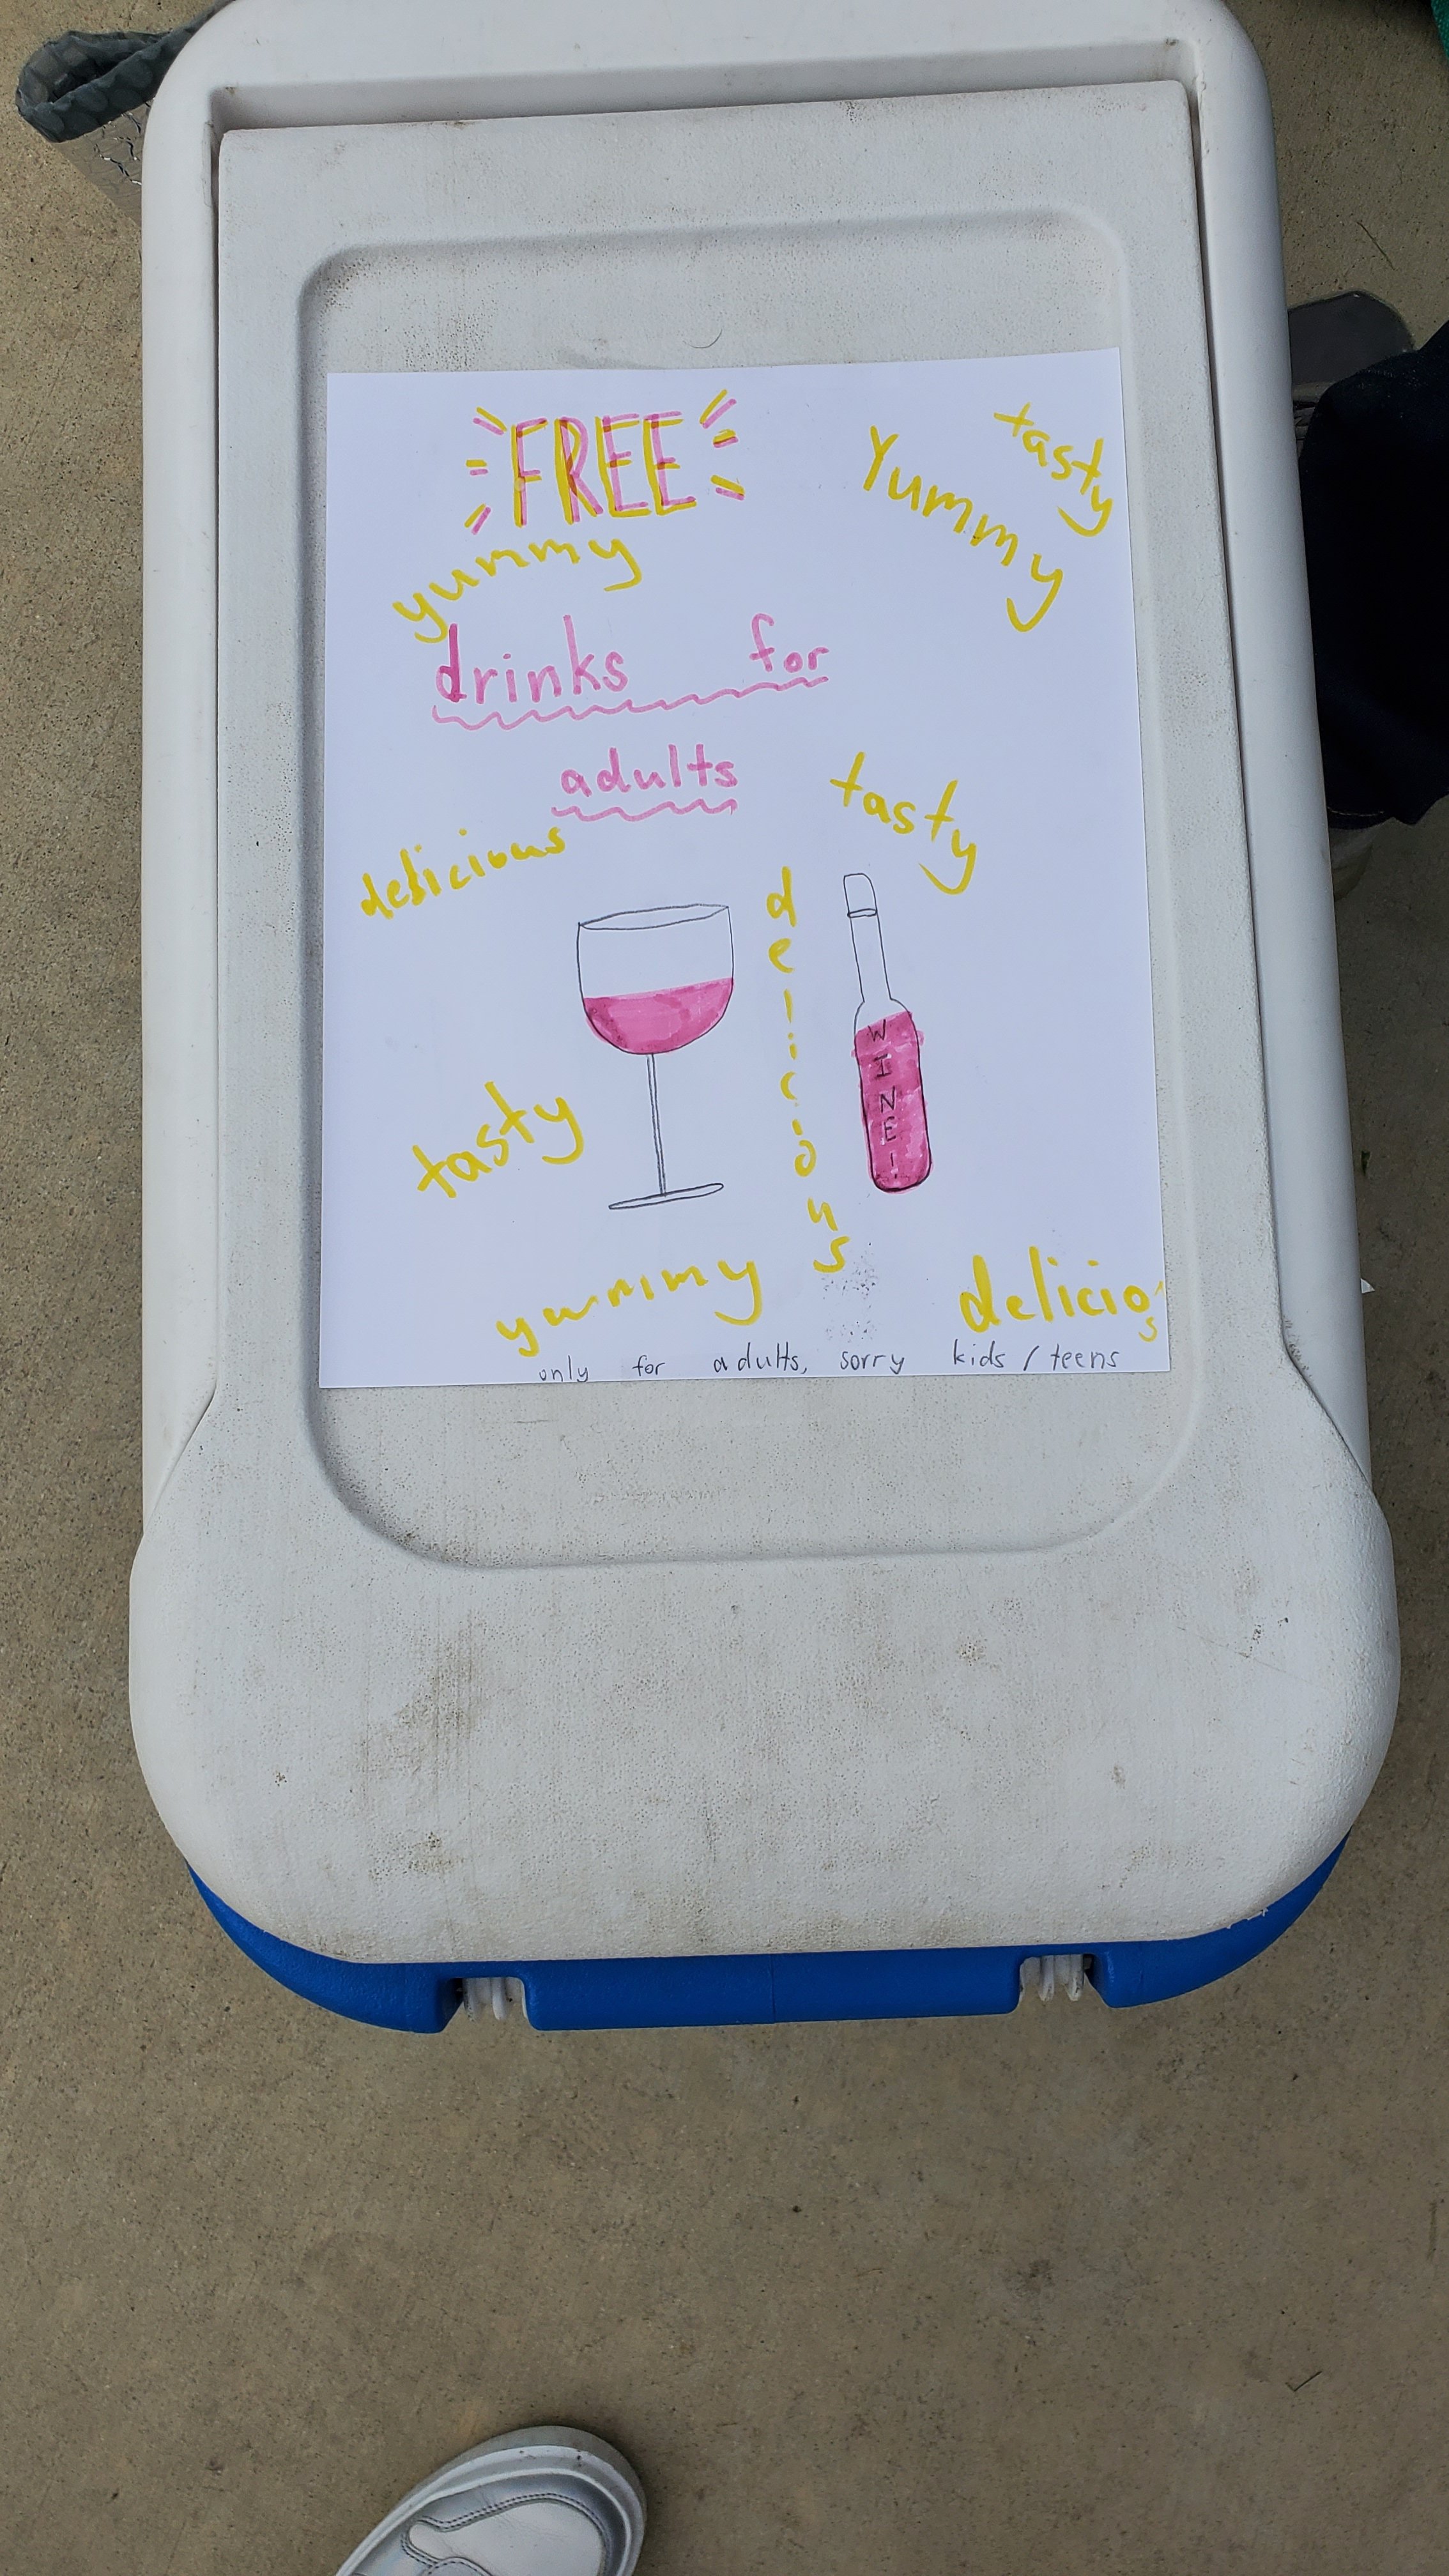 FREE
Yummy
tasty
yummy
drinks for
adults
tasty
delicious
delicious
WINE!
tasty
yummy
delicios
only for adults, sorry kids / teens